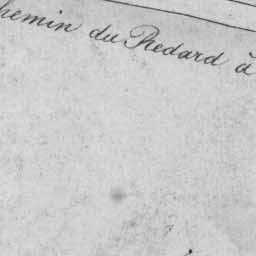 hemin du Redard à